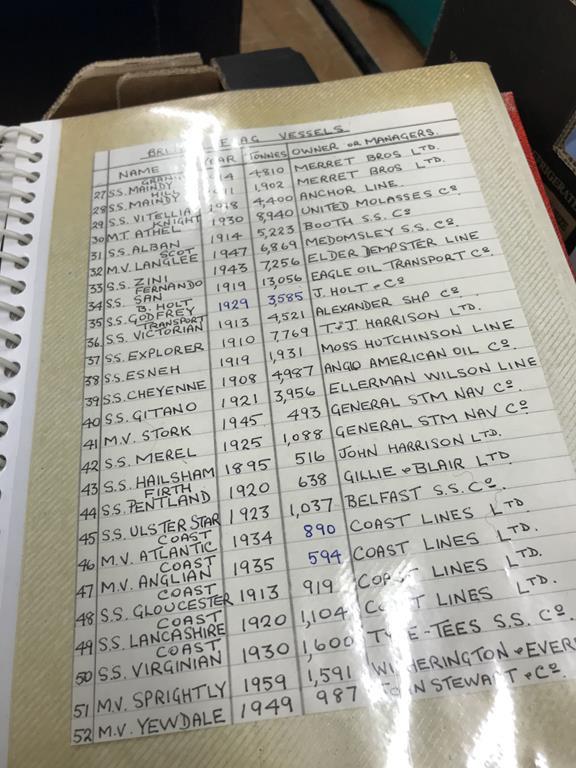 VESSELS
NAME YEAR TONNES OWNER OR MANAGERS.
27 S.S. MAINDY 4810 MERRET BROS LTD.
28 S.S. MAINDY HILL 1911 1,902 MERRET BROS LTD.
29 S.S. VITELLIA 1918 4,400 ANCHOR LINE
30 M.T. ATHEL KNIGHT 1930 8,940 UNITED MOLASSES Cº
31 S.S. ALBAN 1914 5,223 BOOTH S.S. Cº
32 M.V. LANGLEE SCOT 1947 6,869 MEDOMSLEY S.S. Cº
33 S.S. ZINI 1943 7,256 ELDER DEMPSTER LINE
34 S.S. SAN FERNANDO 1919 13,056 EAGLE OIL TRANSPORT Cº
35 S.S. GODFREY B. HOLT 1929 3,585 J. HOLT & Cº
36 S.S. VICTORIAN TRANSPORT 1913 4,521 ALEXANDER SHP Cº
37 S.S. EXPLORER 1910 7,769 T & J HARRISON LTD.
38 S.S. ESNEH 1919 1,931 MOSS HUTCHINSON LINE
39 S.S. CHEYENNE 1908 4987 ANGLO AMERICAN OIL Cº.
40 S.S. GITANO 1921 3,956 ELLERMAN WILSON LINE
41 M.V. STORK 1945 493 GENERAL STM NAV Cº
42 S.S. MEREL 1925 1,088 GENERAL STM NAV Cº
43 S.S. HAILSHAM 1895 516 JOHN HARRISON LTD.
44 S.S. PENTLAND FIRTH 1920 638 GILLIE & BLAIR LTD
45 S.S. ULSTER STAR 1923 1,037 BELFAST S.S. Cº.
46 M.V. ATLANTIC COAST 1934 890 COAST LINES LTD
47 M.V. ANGLIAN COAST 1935 594 COAST LINES LTD.
48 S.S. GLOUCESTER COAST 1913 919 COAST LINES LTD.
49 S.S. LANCASHIRE COAST 1920 1,104 COAST LINES LTD.
50 S.S. VIRGINIAN COAST 1930 1,600 TYNE-TEES S.S. Cº.
51 M.V. SPRIGHTLY 1959 1,591 WITHERINGTON & EVER
52 M.V. YEWDALE 1949 987 JOHN STEWART & Cº.